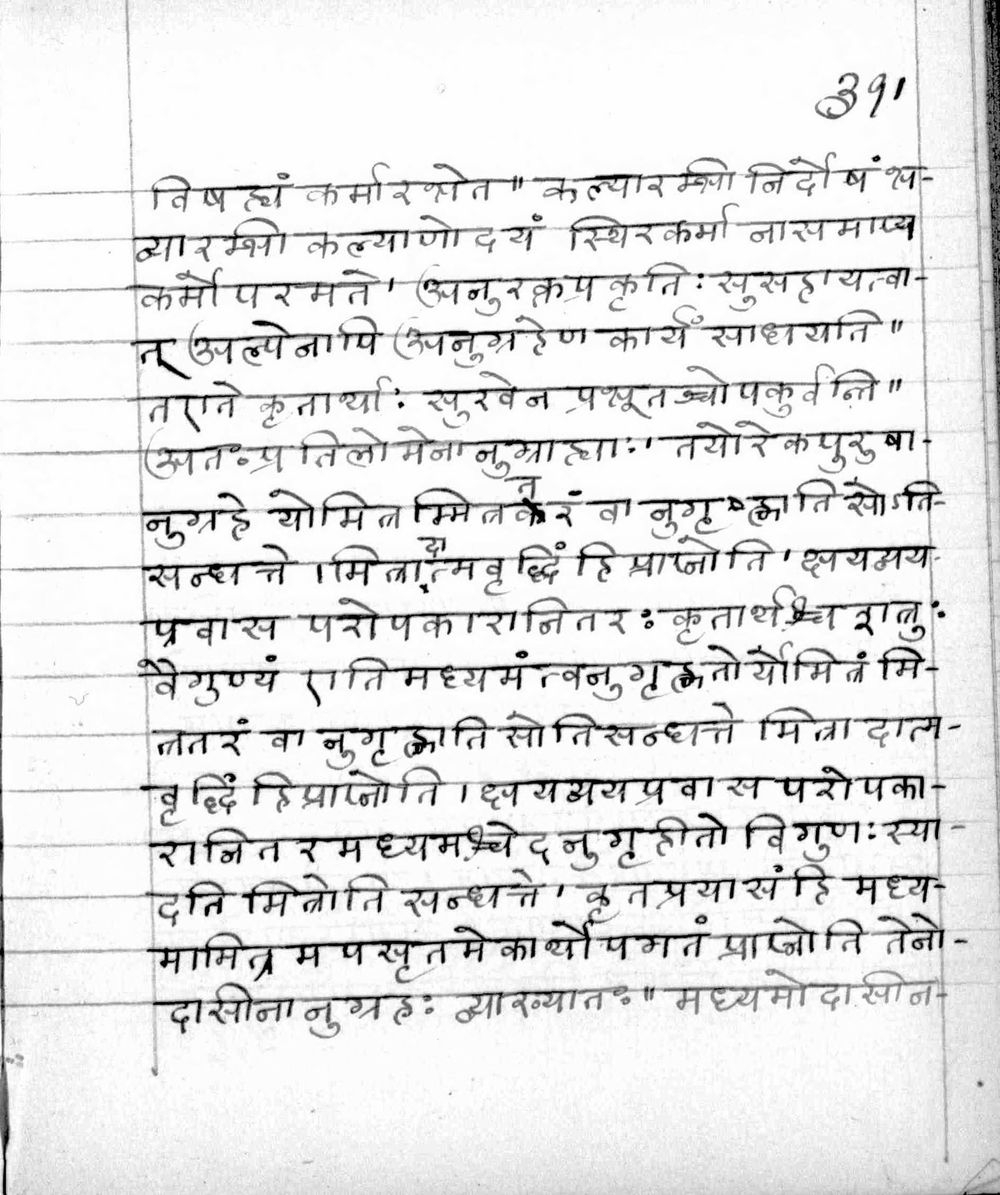 391
विषह्यं कर्मारभेत" कल्यारम्भी निर्दोषं भ-
व्यारम्भी कल्याणोदयं स्थिरकर्मा नासमाप्य
कर्मोपरमते' अनुरक्तप्रकृतिः सुसहायत्वा-
त् अल्पेनापि अनुग्रहेण कार्यं साधयति"
तएते कृतार्थाः सुखेन प्रभूतञ्चोपकुर्वन्ति"
अतःप्रतिलोमेनानुग्राह्याः' तयोरेकपुरुषा-
नुग्रहे योमित्रम्मित्रतरं वानुगृह्णाति सोऽति-
सन्धत्ते । मित्रादात्मवृद्धिं हि प्राप्नोति' क्षयव्यय-
प्रवास परोपकारानितरः कृतार्थश्च शत्रुः
वैगुण्यं एति मध्यमंत्वनुगृह्णतोर्योमित्रं मि-
त्रतरं वानुगृह्णाति सोतिसन्धत्ते मित्रादात्म-
वृद्धिं हिप्राप्नोति । क्षयव्ययप्रवास परोपका-
रानितर मध्यमश्चेदनुगृहीतो विगुणः स्या-
दति मित्रोति सन्धत्ते' कृतप्रयासं हि मध्य-
मामित्र मपसृतमेकार्थोपगतं प्राप्नोति तेनो-
दासीनानुग्रहः व्याख्यातः" मध्यमोदासीन-